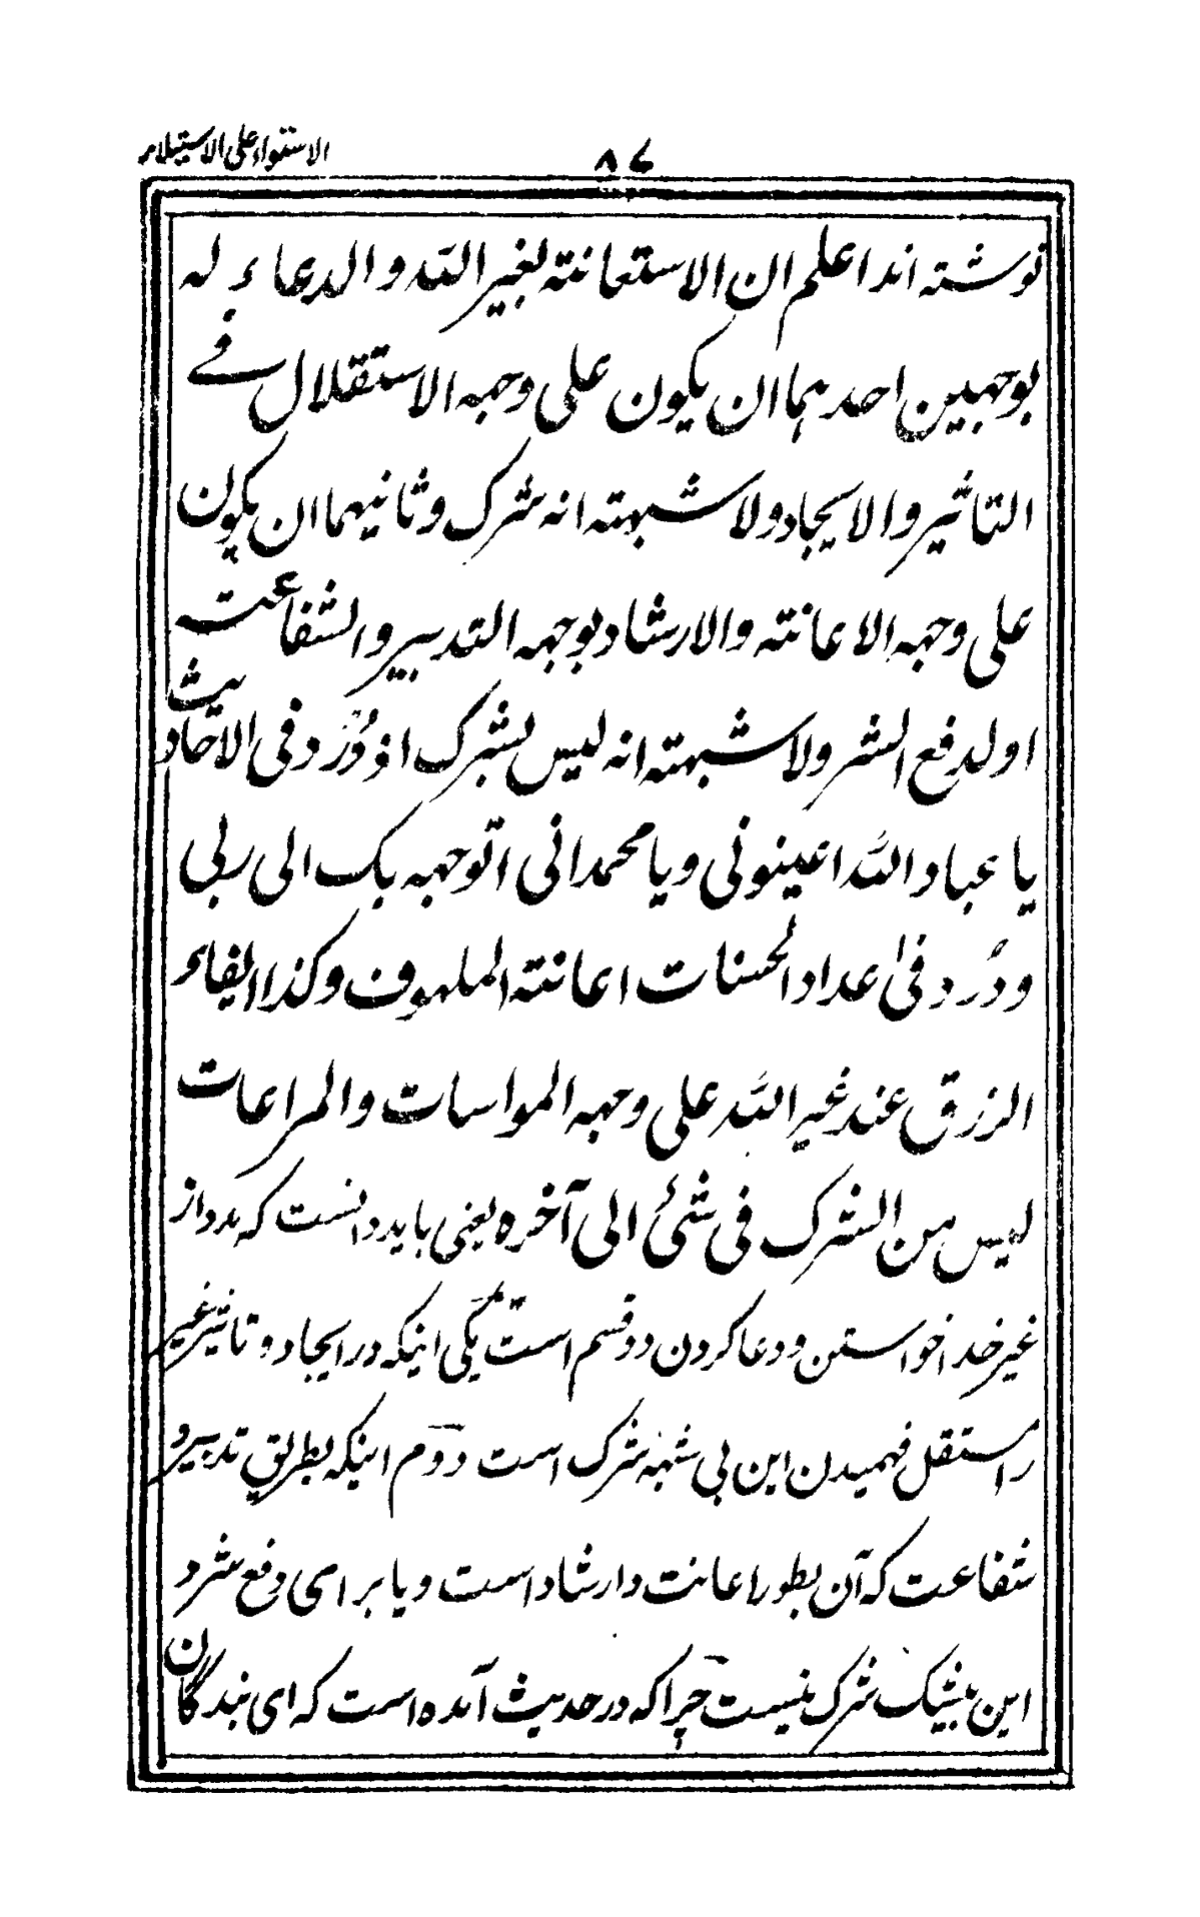 الاستواء علی الاستیلاء
۸۷
نوشته اند اعلم ان الاستعانته بغیر الله والدعاء له
بوجهین احدهما ان یکون علی وجه الاستقلال فے
التاثیر والایجاد ولا شبهته انه شرک وثانیهما ان یکون
علی وجه الاعانته والارشاد بوجه التدبیر والشفاعت
اولدفع الشر ولا شبهته انه لیس بشرک اذ وُرَد فی الاحادیث
یا عباد الله اعینونی ویا محمد انی اتوجه بک الی ربی
ووَرد فی اعداد الحسنات اعانته الملهوف وکذا
الرزق عند غیر الله علی وجه المواسات والمراعات
لیس من الشرک فی شئ الی آخره یعنی باید دانست که مدد از
غیر خدا خواستن ودعا کردن دو قسم است یکی اینکه در ایجاد وتاثیر غیر
را مستقل فهمیدن این بی شبهه شرک است دوم اینکه بطریق تدبیر و
شفاعت که آن بطور اعانت وارشاد است ویا برای دفع شر و
این بیشک شرک نیست چرا که در حدیث آمده است که ای بندگان